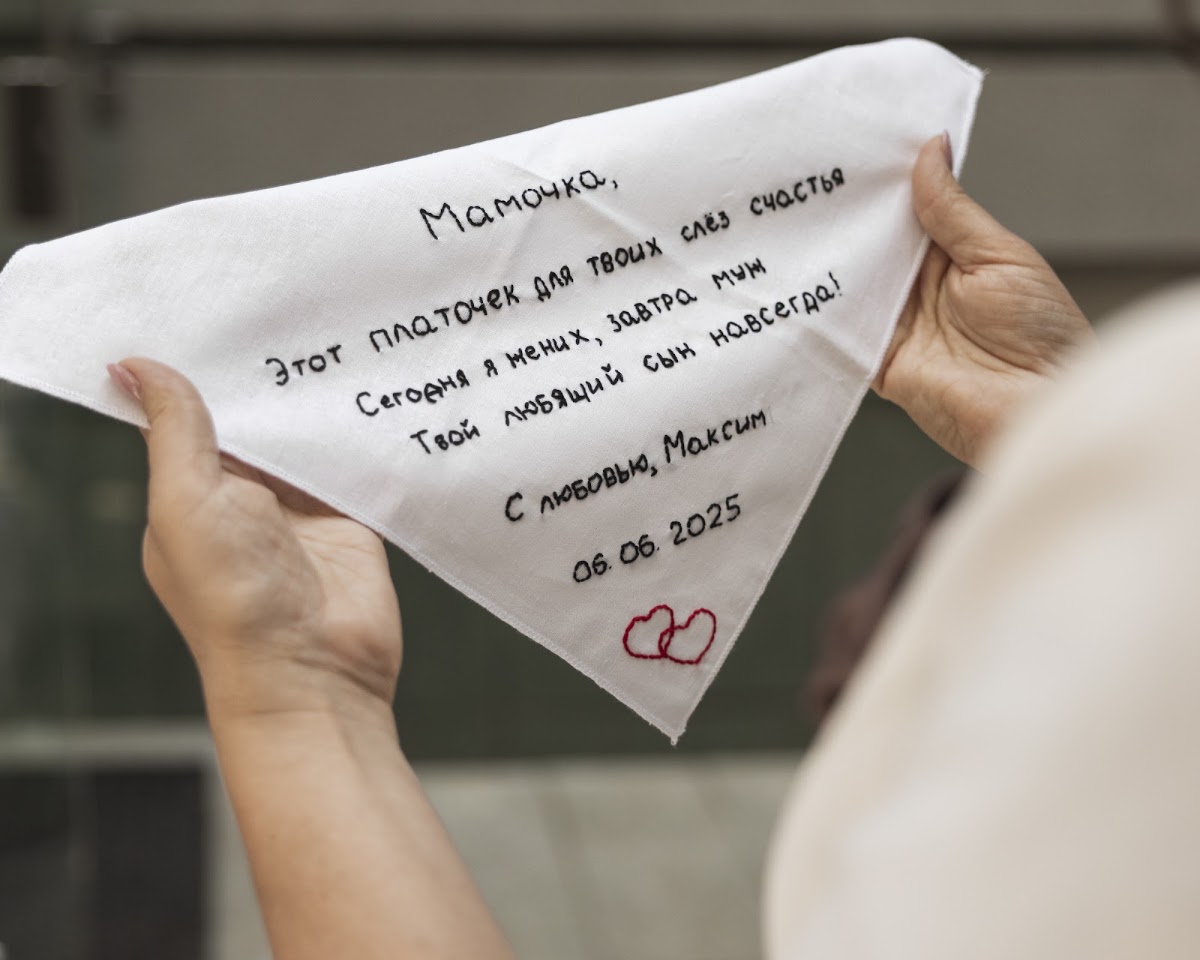 Мамочка,
Этот платочек для твоих слёз счастья
Сегодня я жених, завтра муж
Твой любящий сын навсегда!
С любовью, Максим
06.06.2025